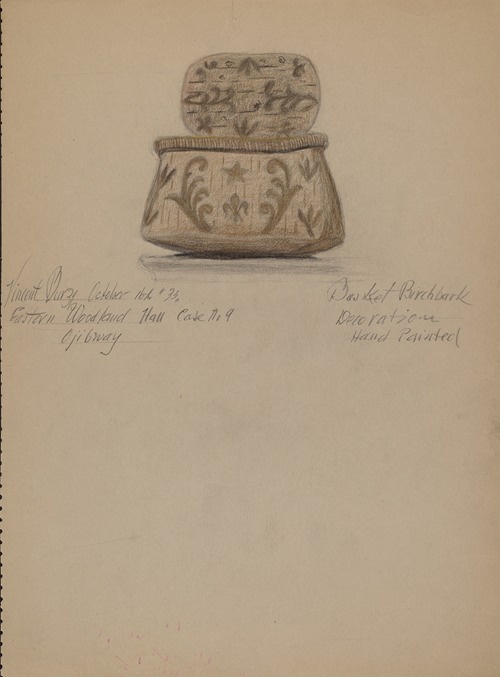 Vincent October 16th
Eastern Woodland Hall Case No 9
Ojibway
Basket Birchbark
Decoration
Hand Painted